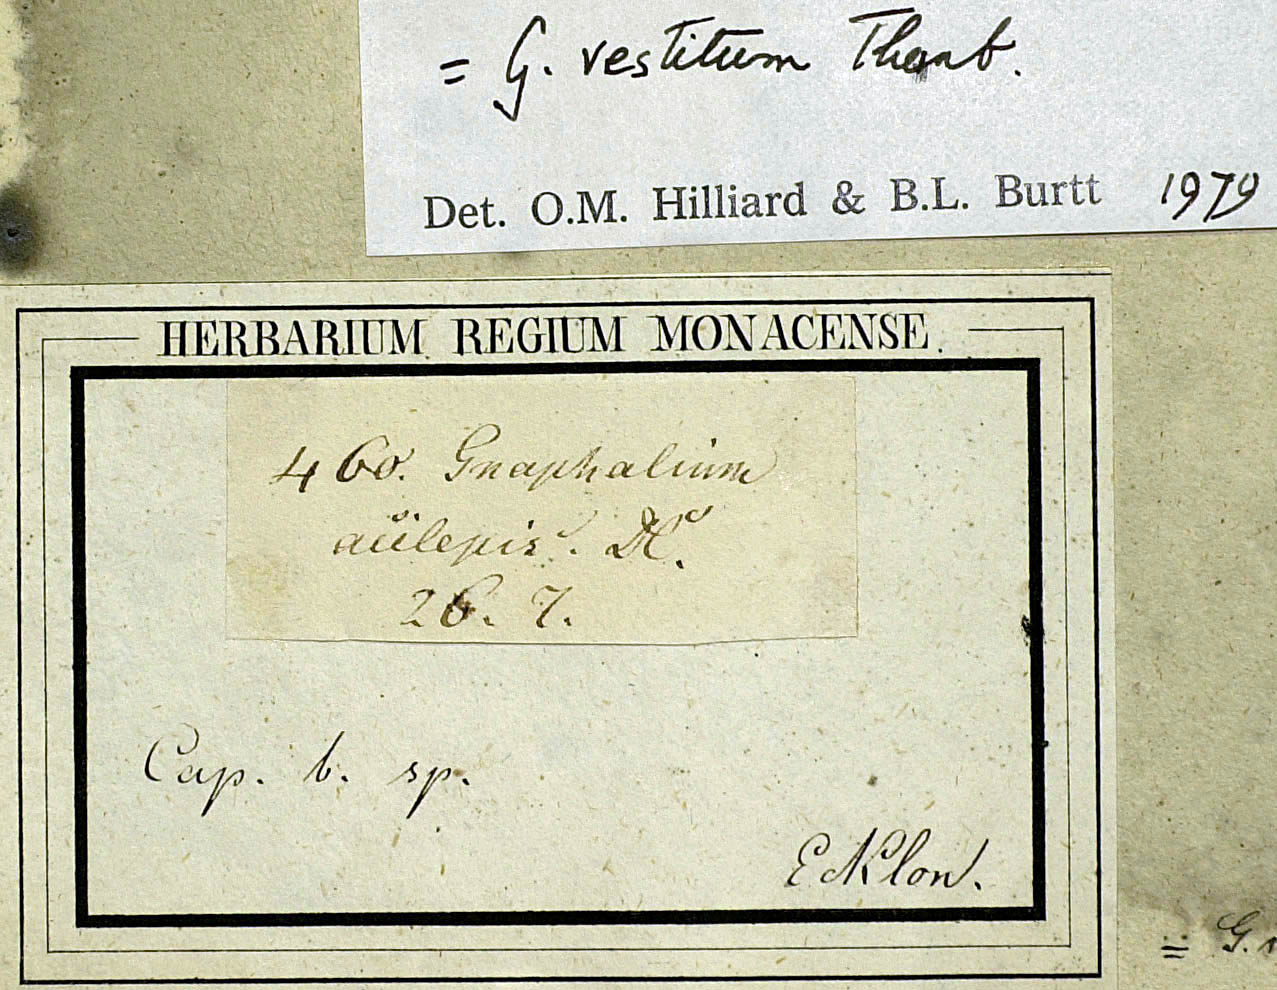 = G. vestitum Thunb.
Det. O.M. Hilliard & B.L. Burtt 1979
HERBARIUM REGIUM MONACENSE.
460. Gnaphalium
acilepis. DC.
26. 7.
Cap. b. sp.
Ecklon.
= G.